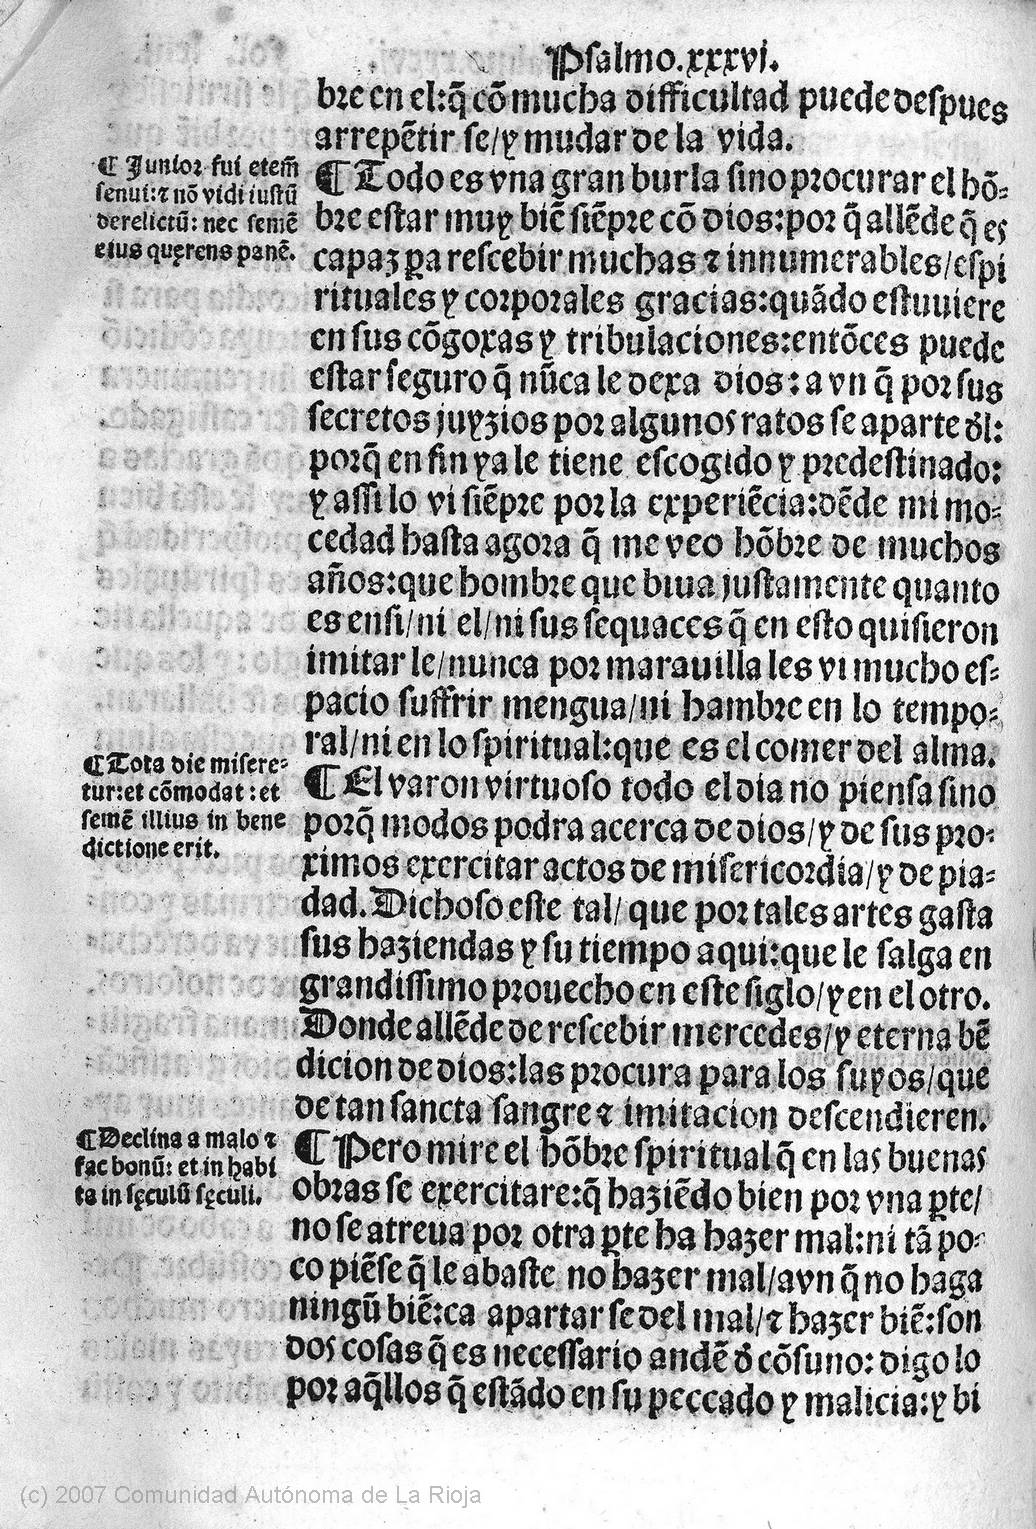 Psalmo.xxxvi.
bre en el:q̃ cõ mucha difficultad puede despues
arrepẽtir se/y mudar de la vida.
¶ Junior fui etem̃
senui:⁊ nõ vidi iustũ
derelictũ: nec semẽ
eius quęrens panẽ.
¶ Todo es vna gran burla sino procurar el hõ-
bre estar muy biẽ siẽpre cõ dios:por q̃ allẽde q̃ es
capaz ꝑa rescebir muchas ⁊ innumerables/espi
rituales y corporales gracias:quãdo estuuiere
en sus cõgoxas y tribulaciones:entõces puede
estar seguro q̃ nũca le dexa dios: a vn q̃ por sus
secretos juyzios por algunos ratos se aparte ďl:
porq̃ en fin ya le tiene escogido y predestinado:
y assi lo vi siẽpre por la experiẽcia:dẽde mi mo-
cedad hasta agora q̃ me veo hõbre de muchos
años:que hombre que biua justamente quanto
es ensi/ni el/ni sus sequaces q̃ en esto quisieron
imitar le/nunca por marauilla les vi mucho es-
pacio suffrir mengua/ni hambre en lo tempo-
ral/ni en lo spiritual:que es el comer del alma.
¶Tota die misere-
tur:et cõmodat : et
semẽ illius in bene
dictione erit.
¶ El varon virtuoso todo el dia no piensa sino
porq̃ modos podra acerca de dios/y de sus pro-
ximos exercitar actos de misericordia/y de pia-
dad. Dichoso este tal/ que por tales artes gasta
sus haziendas y su tiempo aqui:que le salga en
grandissimo prouecho en este siglo/y en el otro.
Donde allẽde de rescebir mercedes/y eterna bẽ
dicion de dios:las procura para los suyos/que
de tan sancta sangre ⁊ imitacion descendieren.
¶Declina a malo ⁊
fac bonũ: et in habi
ta in sęculũ sęculi.
¶ Pero mire el hõbre spiritual q̃ en las buenas
obras se exercitare:q̃ haziẽdo bien por vna ꝑte/
no se atreua por otra ꝑte ha hazer mal:ni tã po-
co piẽse q̃ le abaste no hazer mal/avn q̃ no haga
ningũ biẽ:ca apartar se del mal/⁊ hazer biẽ:son
dos cosas q̃ es necessario andẽ ď cõsuno: digo lo
por aq̃llos q̃ estãdo en su peccado y malicia:y bi
(c) 2007 Comunidad Autónoma de La Rioja